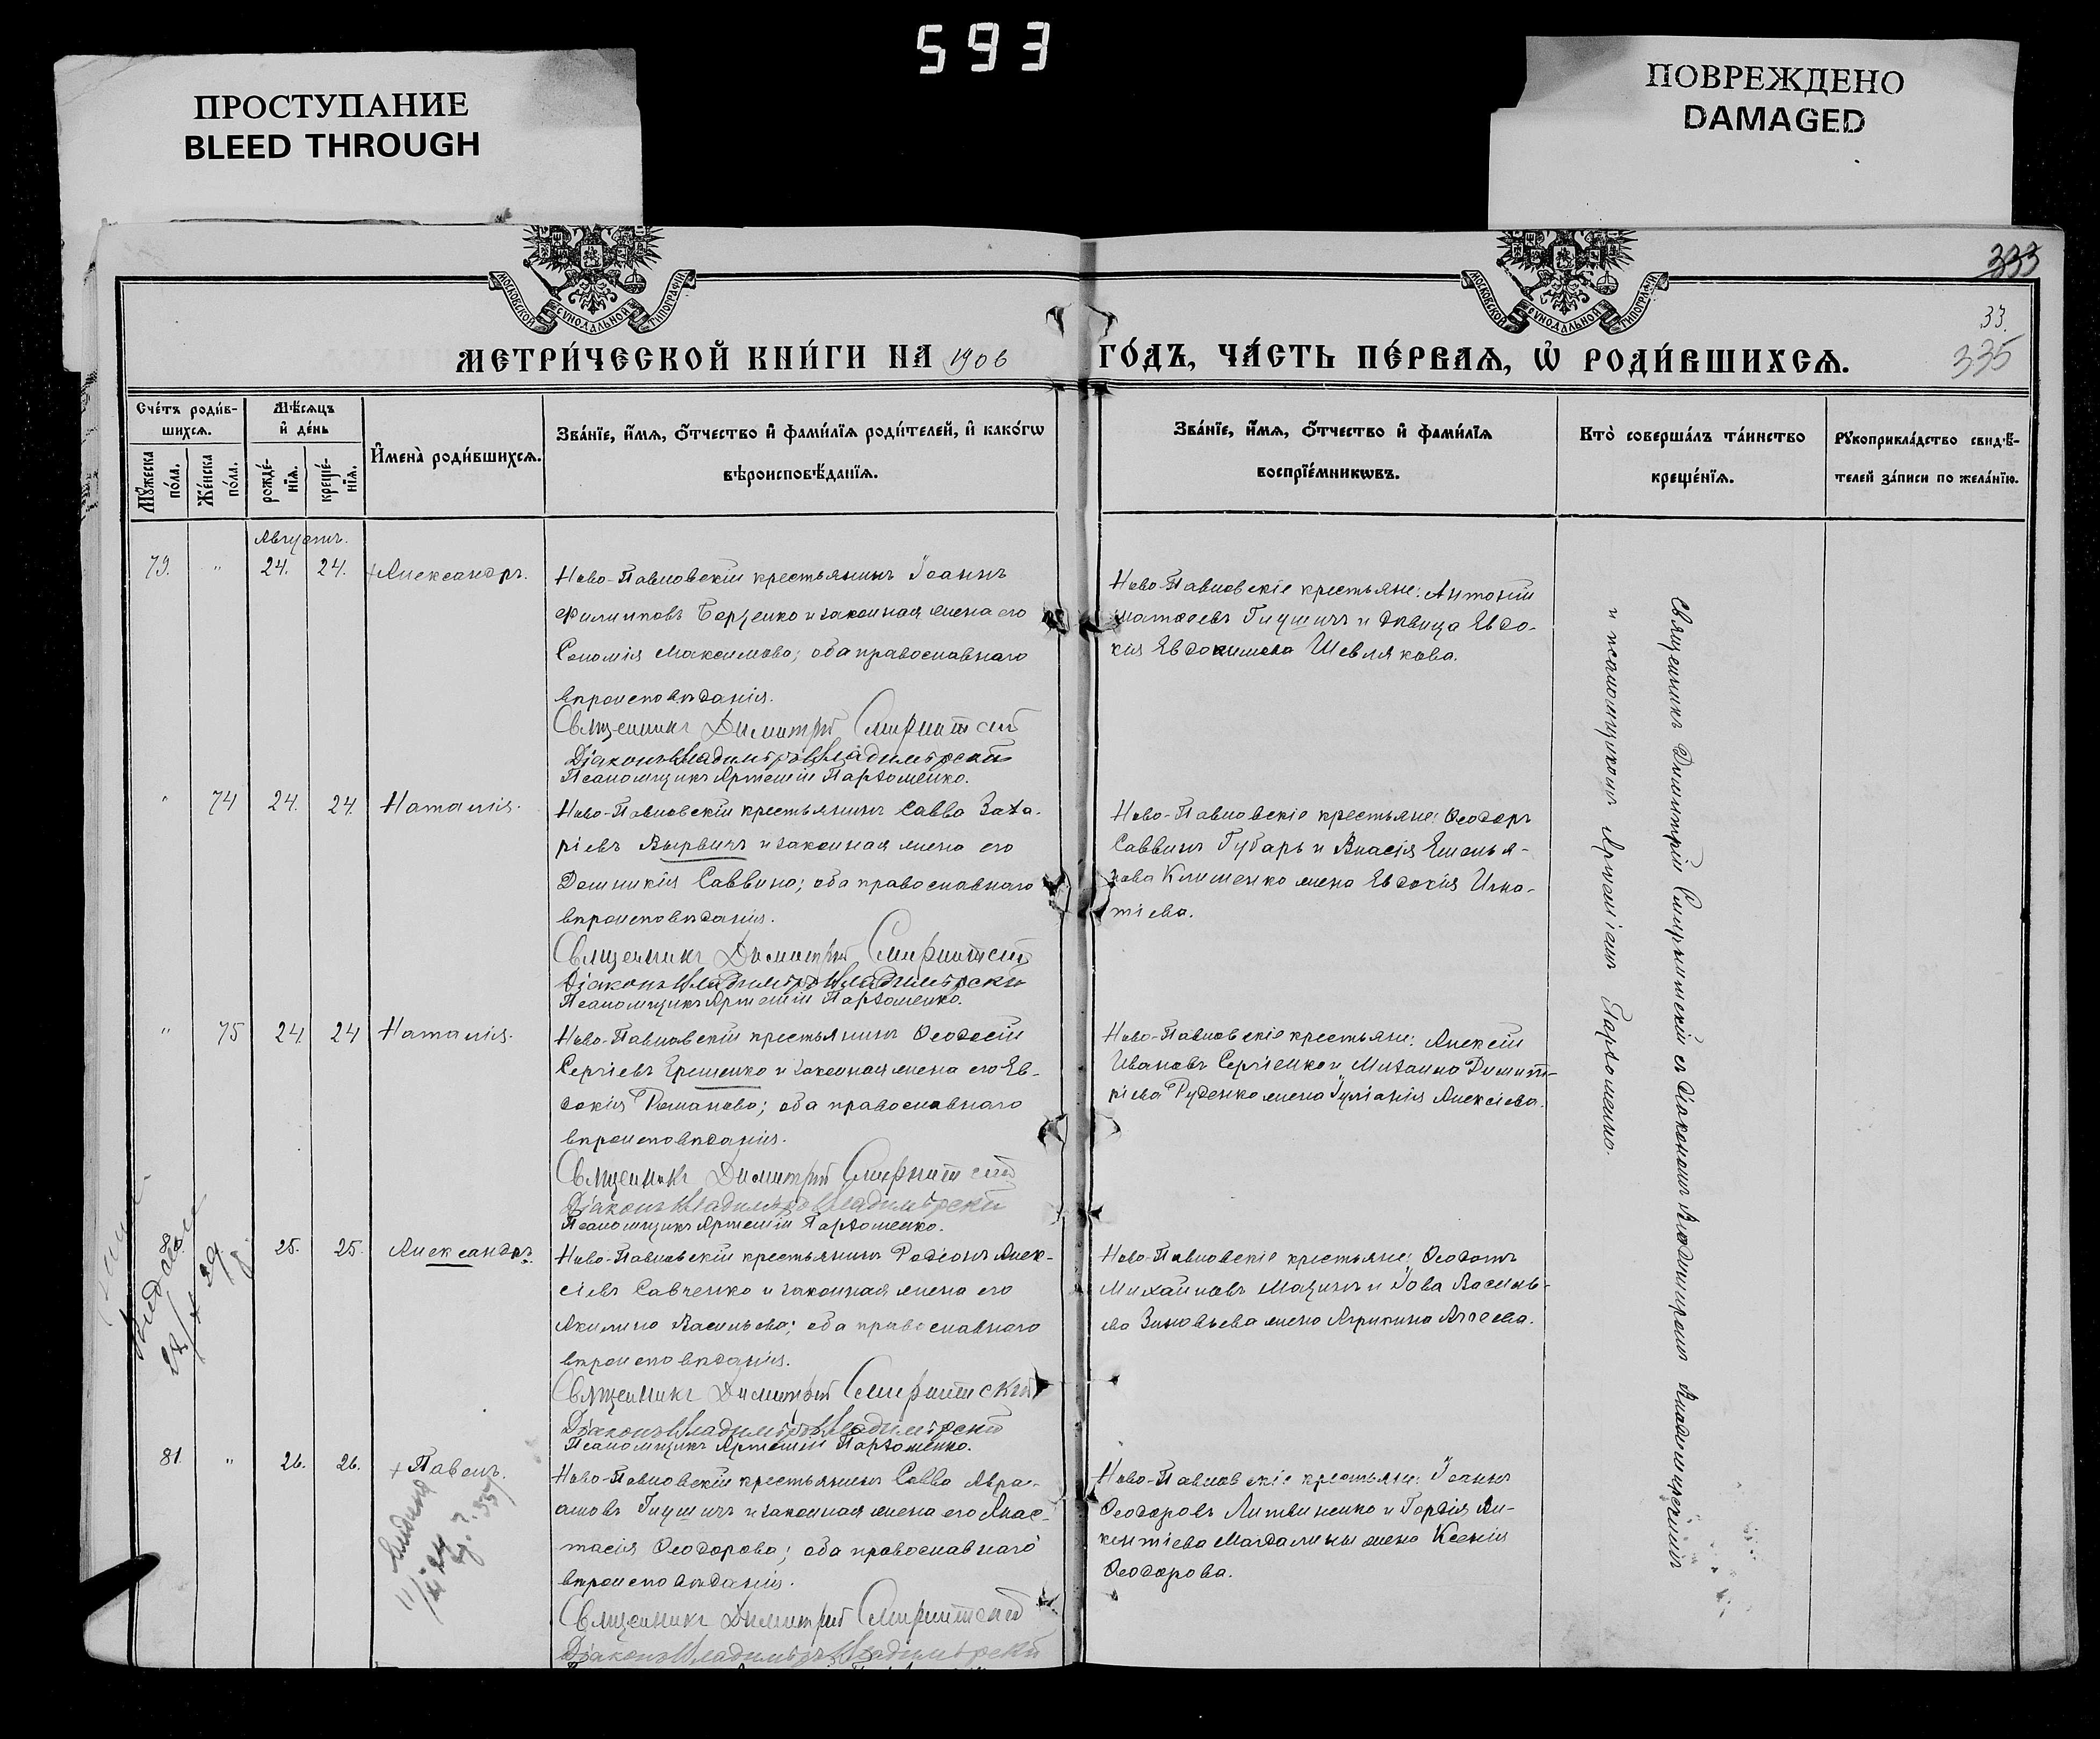 593
ПРОСТУПАНИЕ
BLEED THROUGH
ПОВРЕЖДЕНО
DAMAGED
МОСКОВСКОЙ СѴНОДАЛЬНОЙ ТИПОГРАФІИ
МОСКОВСКОЙ СѴНОДАЛЬНОЙ ТИПОГРАФІИ
333
33.
335
МЕТРИ́ЧЕСКОЙ КНИ́ГИ НА 1906 ГО́ДЪ, ЧА́СТЬ ПЕ́РВАѦ, Ѿ РОДИ́ВШИХСѦ.
Сче́тъ роди́в-
шихсѧ.
Мѣ́сѧцъ
и҆ де́нь
Мꙋ́жеска
по́ла.
Же́нска
по́ла.
рожде́-
нїѧ.
креще́-
нїѧ.
И҆мена̀ роди́вшихсѧ.
Зва́нїе, и҆́мѧ, ѻ҆́тчество и҆ фами́лїѧ роди́телей, и҆ како́гѡ
вѣроисповѣ́данїѧ.
Зва́нїе, и҆́мѧ, ѻ҆́тчество и҆ фами́лїѧ
воспрїе́мникѡвъ.
Кто̀ соверша́лъ та́инство
креще́нїѧ.
Рꙋкоприкла́дство свидѣ́-
телей за́писи по жела́нїю.
Августъ.
79. " 24. 24. +Александръ.
Ново-Павловскій крестьянинъ Іоаннъ
Филипповъ и законная жена его
Соломія Максимова; оба православнаго
вѣроисповѣданія.
Священникъ Димитрій
Діаконъ Владиміръ Владимірскій
Псаломщикъ Артемій Пархоменко.
Ново-Павловскіе крестьяне: Антоній
Матѳеевъ Глушичъ и дѣвица Евдо-
кія Евдокимова Шевлякова.
" 74 24. 24. Наталія.
Ново-Павловскій крестьянинъ Савва Заха-
ріевъ Вырвичъ и законная жена его
Домникія Саввина; оба православнаго
вѣроисповѣданія.
Священникъ Димитрій
Діаконъ Владиміръ Владимірскій
Псаломщикъ Артемій Пархоменко.
Ново-Павловскіе крестьяне: Ѳеодоръ
Саввинъ Губарь и Власія Емелья-
нова Клименко жена Евдокія Игна-
тіева.
" 75 24 24 Наталія.
Ново-Павловскій крестьянинъ Ѳеодосій
Сергіевъ Еременко и законная жена его Ев-
докія Романова; оба православнаго
вѣроисповѣданія.
Священникъ Димитрій
Діаконъ Владиміръ Владимірскій
Псаломщикъ Артемій Пархоменко.
Ново-Павловскіе крестьяне: Алексій
Ивановъ Сергіенко и Михаила Димит-
ріева Руденко жена Іуліанія Алексіева.
80. 25. 25. Александръ.
Ново-Павловскій крестьянинъ Родіонъ Алек-
сіевъ Савченко и законная жена его
Акилина Васильева; оба православнаго
вѣроисповѣданія.
Священникъ Димитрій
Діаконъ Владиміръ Владимірскій
Псаломщикъ Артемій Пархоменко.
Ново-Павловскіе крестьяне: Ѳеодотъ
Михаиловъ Мазинъ и Іова Василь-
ева Зиновьева жена Агрипина
81. " 26. 26. + Павелъ.
Ново-Павловскій крестьянинъ Савва Авра-
амовъ Глушичъ и законная жена его Анас-
тасія Ѳеодорова; оба православнаго
вѣроисповѣданія.
Священникъ Димитрій
Діаконъ Владиміръ Владимірскій
Ново-Павловскіе крестьяне: Іоаннъ
Ѳеодоровъ Литвиненко и Гордія Ви-
кентіева Магдалины жена Ксенія
Ѳеодорова.
Священникъ Димитрій съ діакономъ Владиміромъ Владимірскимъ
и псаломщикомъ Артеміемъ Пархоменко.